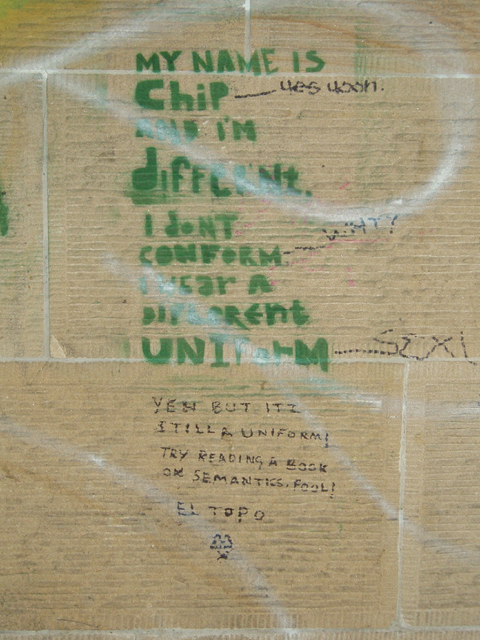 MY NAME IS
ChiP
AND I'M
diffERENt.
I dONT
CONFORM.
WHAT?
I WEar A
DIFFERENt
UNIFORM
YEH BUT ITZ
STILL A UNIFORM!
TRY READING A BOOK
ON SEMANTICS, FOOL!
EL TOPO